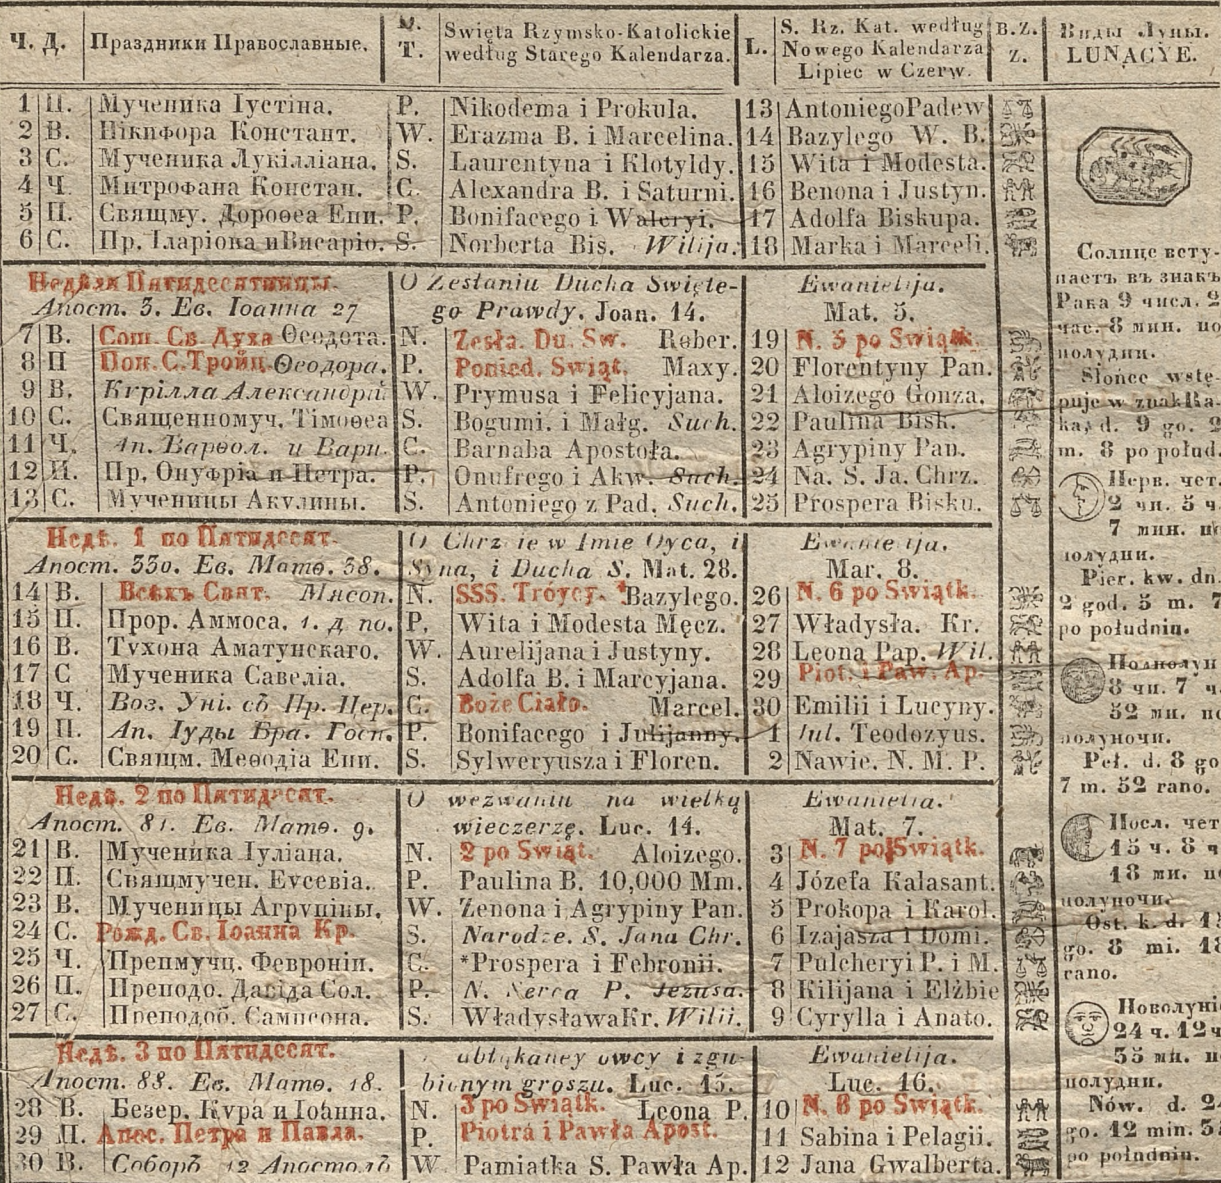 Ч. Д. Праздники Православные. М. T. Swięta Rzymsko-Katolickie według Starego Kalendarza. L. S. Rz. Kat. według Nowego Kalendarza Lipiec w Czerw. B.Z. Z. Виды Луны. LUNACYE.
1 П. Мученика Іустіна. P. Nikodema i Prokula. 13 Antoniego Padew
2 В. Никифора Констант. W. Erazma B. i Marcelina. 14 Bazylego W. B.
3 С. Мученика Лукілліана. S. Laurentyna i Klotyldy. 15 Wita i Modesta.
4 Ч. Митрофана Констан. C. Alexandra B. i Saturni. 16 Benona i Justyn.
5 П. Свящму. Дороѳеа Епи. P. Bonifacego i Waleryi. 17 Adolfa Biskupa.
6 С. Пр. Іларіона и Висаріо. S. Norberta Bis. Wilija. 18 Marka i Marceli.
Недѣля Пятидесятницы. O Zesłaniu Ducha Swięte- Ewanielija.
Апост. 3. Ев. Іоанна 27 go Prawdy. Joan. 14. Mat. 5.
7 В. Сош. Св. Духа Ѳеодота. N. Zesła. Du. Sw. Rober. 19 N. 5 po Swiątk.
8 П Пон. С. Тройц. Ѳеодора. P. Ponied. Swiąt. Maxy. 20 Florentyny Pan.
9 В. Курілла Александрій. W. Prymusa i Felicyjana. 21 Aloizego Gonza.
10 С. Священномуч. Тімоѳеа S. Bogumi. i Małg. Such. 22 Paulina Bisk.
11 Ч. Ап. Варѳол. и Варн. C. Barnaba Apostoła. 23 Agrypiny Pan.
12 П. Пр. Онуфрія и Петра. P. Onufrego i Akw. Such. 24 Na. S. Ja. Chrz.
13 С. Мученицы Акулины. S. Antoniego z Pad. Such. 25 Prospera Bisku.
Недѣ. 1 по Пятидесят. O Chrzcie w Imie Oyca, i Ewanielija.
Апост. 330. Ев. Матѳ. 38. Syna, i Ducha S. Mat. 28. Mar. 8.
14 В. Всѣхъ Свят. Мясоп. N. SSS. Tróycy. *Bazylego. 26 N. 6 po Swiątk.
15 П. Прор. Аммоса. 1. д. по. P. Wita i Modesta Męcz. 27 Władysła. Kr.
16 В. Тухона Аматунскаго. W. Aurelijana i Justyny. 28 Leona Pap. Wil.
17 С Мученика Савеліа. S. Adolfa B. i Marcyjana. 29 Piot. i Paw. Ap.
18 Ч. Воз. Уні. съ Пр. Цер. C. Boże Ciało. Marcel. 30 Emilii i Lucyny.
19 П. Ап. Іуды Бра. Госп. P. Bonifacego i Julijanny. 1 Iul. Teodozyus.
20 С. Свящм. Меѳодіа Епи. S. Sylweryusza i Floren. 2 Nawie. N. M. P.
Недѣ. 2 по Пятидесят. O wezwaniu na wielką Ewanielia.
Апост. 81. Ев. Матѳ. 9. wieczerzę. Luc. 14. Mat. 7.
21 В. Мученика Іуліана. N. 2 po Swiąt. Aloizego. 3 N. 7 po Swiątk.
22 П. Свящмучен. Еусевіа. P. Paulina B. 10,000 Mm. 4 Józefa Kalasant.
23 В. Мученицы Агрупіны. W. Zenona i Agrypiny Pan. 5 Prokopa i Karol.
24 С. Рожд. Св. Іоанна Кр. S. Narodze. S. Jana Chr. 6 Izajasza i Domi.
25 Ч. Препмучц. Февроніи. C. *Prospera i Febronii. 7 Pulcheryi P. i M.
26 П. Преподо. Давіда Сол. P. N. Serca P. Jezusa. 8 Kilijana i Elżbie
27 С. Преподоб. Сампсона. S. Władysława Kr. Wilii. 9 Cyrylla i Anato.
Недѣ. 3 по Пятидесят. obłąkaney owcy i zgu- Ewanielija.
Апост. 88. Ев. Матѳ. 18. bionym groszu. Luc. 15. Luc. 16.
28 В. Безер. Кура и Іоанна. N. 3 po Swiątk. Leona P. 10 N. 8 po Swiątk.
29 П. Апос. Петра и Павла. P. Piotra i Pawła Apost. 11 Sabina i Pelagii.
30 В. Соборъ 12 Апостолъ W. Pamiatka S. Pawła Ap. 12 Jana Gwalberta.
Солнце всту-
паетъ въ знакъ
Рака 9 числ. 2
час. 8 мин. по
полудни.
Słońce wstę-
puje w znak Ra-
ka, d. 9 go. 2
m. 8 po połud.
Перв. чет.
2 чи. 5 ч.
7 мин. по
полудни.
Pier. kw. dn.
2 god. 5 m. 7
po południu.
Полнолун
8 чи. 7 ч.
52 ми. по
полуночи.
Peł. d. 8 go
7 m. 52 rano.
Посл. чет
15 ч. 8 ч
18 ми. по
полуночи.
Ost. k. d. 15
go. 8 mi. 18
rano.
Новолуніе
24 ч. 12 ч
35 ми. по
полудни.
Nów. d. 24
go. 12 min. 35
po południu.